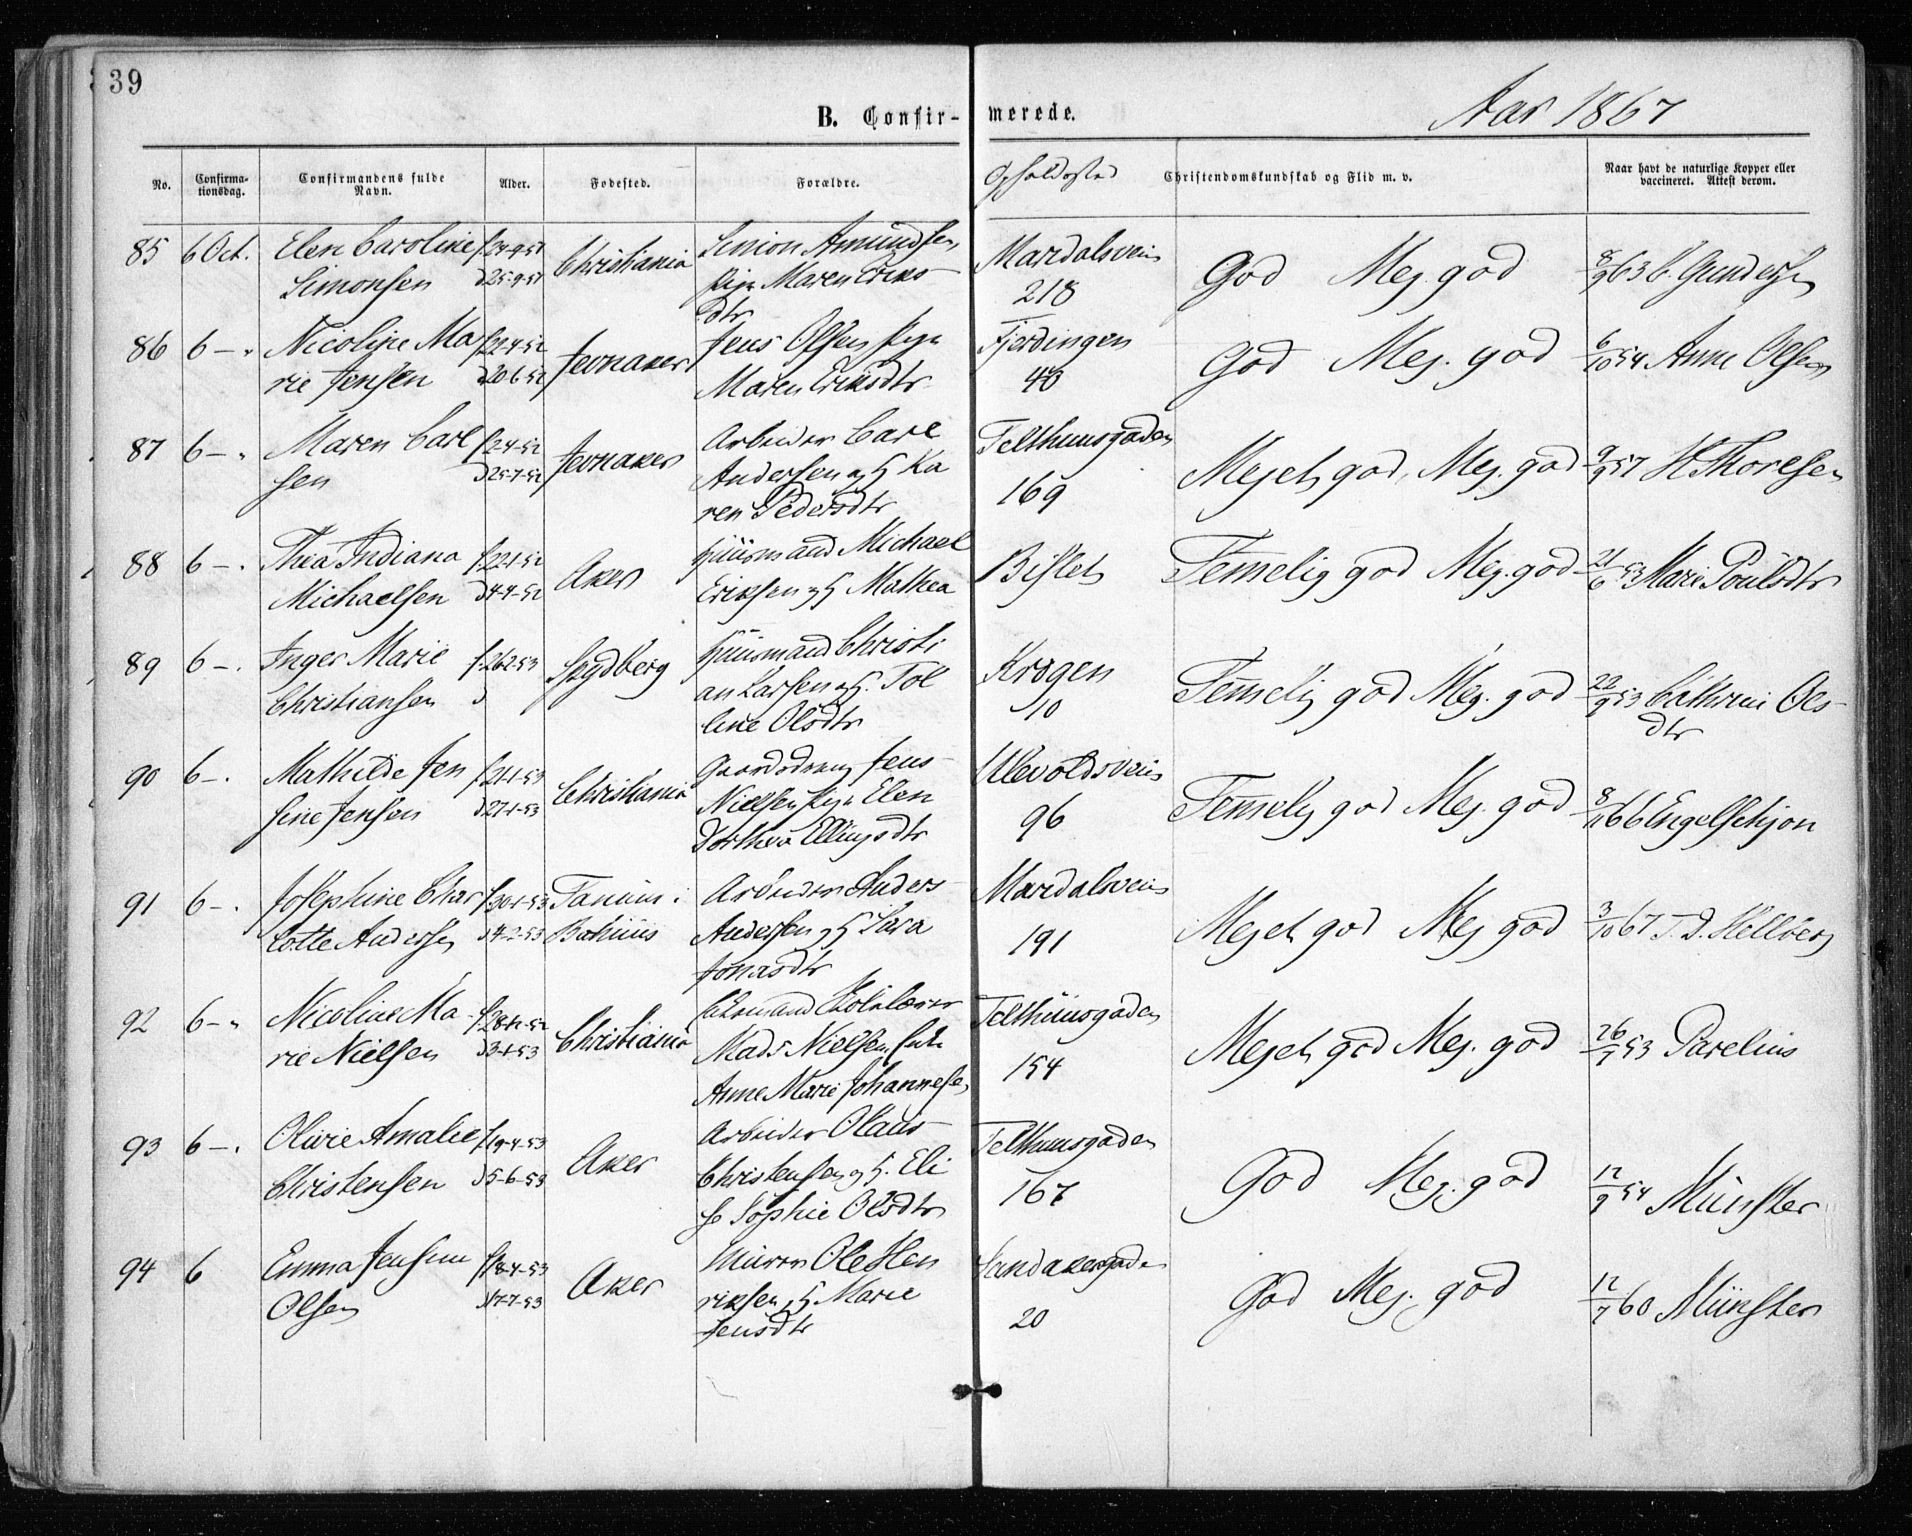 39
B. Confir- merede.
Aar 1867
No.
Confirma-
tionsdag.
Confirmandens fulde
Navn.
Alder.
Fødested.
Forældre.
Opholdssted
Christendomskundskab og Flid m. v.
Naar havt de naturlige Kopper eller
vaccineret. Attest derom.
85 6 Oct. Elen Caroline f. 24-9-51 Christiania Simon Amundsen Maridalsveien God Meg. god 8/9 63 C. Gundersen
Simonsen d 25-9-51 Pige Maren Eriks- 218
dtr
86 6 — " Nicoline Ma f. 22-4-52 Jevnaker Jens Olsen Pige Fjerdingen God Meg. god 6/10 54 Anne Olsen
rie Jensen d 20-6-52 Maren Eriksdtr 40
87 6 — " Maren Carl f. 2-4-52 Jevnaker Arbeider Carl Telthuusgaden Meget god, Meg. god 9/9 57 H Thoresen
sen d 25-7-52 Andersen og H Ka 169
ren Pedersdtr
88 6 — " Thea Indiana f. 22-1-52 Aker Huusmand Michael Bislet Temelig god Meg. god 21/6 53 Marie Poulsdtr
Michaelsen d 4-4-52 Eriksen og H Mathea
89 6 — . Inger Marie f. 26-2-53 Spydberg Huusmand Christi Krogen Temelig god Meg. god 22/9 53 Cathrine Ols-
Christiansen d an Larsen og H. Tol 10 dtr
line Olsdtr
90 6 — . Mathilde Jen f. 21-1-53 Christiania Gaardsdreng Jens Ulevoldsveien Temelig god Meg. god 8/11 66 Engelschjon
sine Jensen d 27-1-53 Nielsen Pige Elen 96
Dorthea Ellingsdtr
91 6 — . Josephine Char f. 30-1-53 Tanum i Arbeider Anders Maridalsveien Meget god Meg god 3/10 67 J. D. Hellberg
lotte Andersen d 4-2-53 Bahuus Andersen og H Sara 191
Jonasdtr
92 6 — " Nicoline Ma f. 28-12-52 Christiania Telthuusgaden Meget god Meg. god 26/9 53 Parelius
rie Nielsen d 3-1-53 Mads Nielsen 154
Anne Marie Johannesen
93 6 — . Olivie Amalie f. 19-4-53 Aker Arbeider Olaus Telthuusgaden God Meg. god 12/9 54 Münster
Christensen d 5-6-53 Christensen og H. Eli 167
se Sophie Olsdtr
94 6 Emma Jensine f. 18-4-53 Aker Murer Ole Hen Sandakergaden God Meg. god 12/7 60 Münster
Olsen d 17-7-53 riksen, H Marie 20
Jensdtr